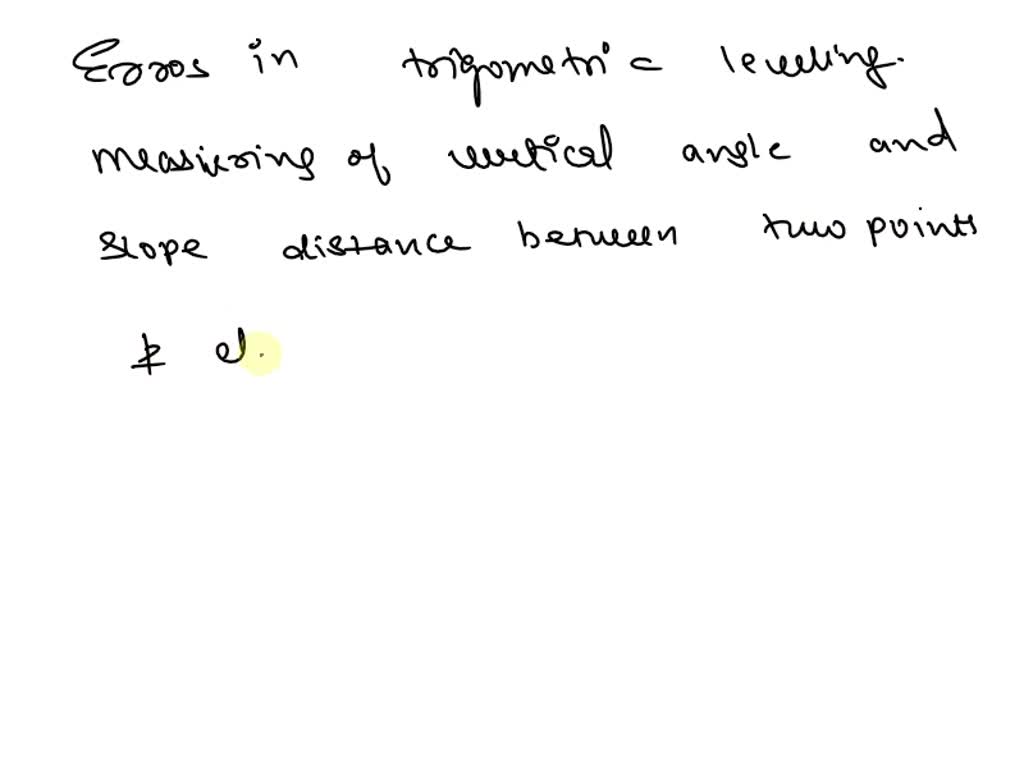 Erros in trigometric leveling.
measuring of vertical angle and
slope distance between two points